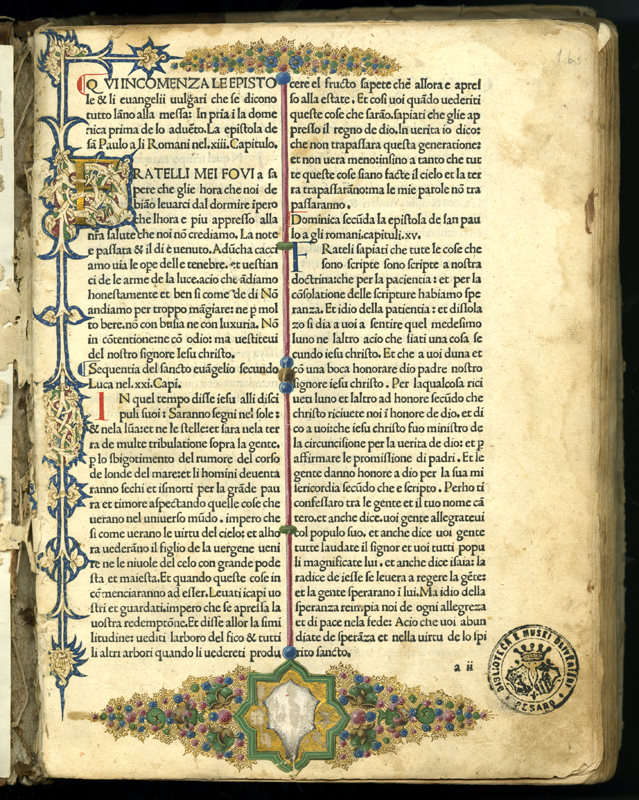 QVI INCOMENZA LE EPISTO
le & li euangelii uulgari che se dicono
tutto lãno alla messa: In pria i la dome
nica prima de lo aduẽto. La epistola de
sã Paulo a li Romani nel .xiii. Capitulo.
FRATELLI MEI FOVI a sa
pere che glie hora che noi de
bião leuarci dal dormire ipero
che lhora e piu appresso alla
nra salute che noi nõ crediamo. La note
e passata & il di e uenuto. Adũcha cacci
amo uia le ope delle tenebre. et uestian
ci de le arme de la luce. acio che ãdiamo
honestamente et ben si come de di Nõ
andiamo per troppo mãgiare: ne p mol
to bere. nõ con busia ne con luxuria. Nõ
in cõtentione: ne cõ odio: ma uestiteui
del nostro signore Iesu christo.
Sequentia del sancto euãgelio secundo
Luca nel .xxi. Capi.
IN quel tempo disse iesu alli disci
puli suoi: Saranno segni nel sole:
& nela lũa: et ne le stelle: et sara nela ter
ra de multe tribulatione sopra la gente.
p lo sbigotimento del rumore del corso
de londe del mare: et li homini deuenta
ranno sechi et ismorti per la grãde pau
ra et timore aspectando quelle cose che
uerano nel uniuerso mũdo. impero che
si come uerano le uirtu del cielo: et alho
ra uederãno il figlio de la uergene ueni
re ne le niuole del celo con grande pode
sta et maiesta. Et quando queste cose in
cõmenciaranno ad esser. Leuati icapi uo
stri et guardati. impero che se apressa la
uostra redemptõne. Et disse allor la simi
litudine: uediti larboro del fico & tutti
li altri arbori quando li uedereti produ
cere el fructo sapete chẽ allora e apres
so alla estate. Et cosi uoi quãdo uederiti
queste cose che sarão. sapiati che glie ap
presso il regno de dio. In uerita io dico:
che non trapassara questa generatione:
et non uera meno: insino a tanto che tut
te queste cose siano facte il cielo et la ter
ra trapassarãno: ma le mie parole nõ tra
passaranno.
Dominica secũda la epistola de san pau
lo a gli romani. capituli. xv.
FRateli sapiati che tute le cose che
sono scripte sono scripte a nostra
doctrina: che per la pacientia: et per la
cõsolatione delle scripture habiamo spe
ranza. Et idio della patientia: et dissola
zo si dia a uoi a sentire quel medesimo
luno ne laltro acio che siati una cosa se
cundo iesu christo. Et che a uoi duna et
cõ una boca honorare dio padre nostro
signore iesu christo. Per laqualcosa rici
ueti luno et laltro ad honore secũdo che
christo riciuete noi ĩ honore de dio. et di
co a uoi: che iesu christo fuo ministro de
la circuncisione per la uerita de dio: et p
affirmare le promissione di padri. Et le
gente danno honore a dio per la sua mi
sericordia secũdo che e scripto. Perho ti
confessaro tra le gente et il tuo nome cã
tero. et anche dice. uoi gente allegrateui
col populo suo. et anche dice uoi gente
tutte laudate il signor et uoi tutti popu
li magnificate lui. et anche dice isaia: la
radice de iesse se leuera a regere la gẽte:
et la gente sperarano ĩ lui. Ma idio della
speranza reimpia noi de ogni allegreza
et di pace nela fede: Acio che uoi abun
diate de sperãza et nella uirtu de lo spi
rito sancto.
a ii
BIBLIOTECA E MUSEI OLIVERIANI
PESARO
1 bis